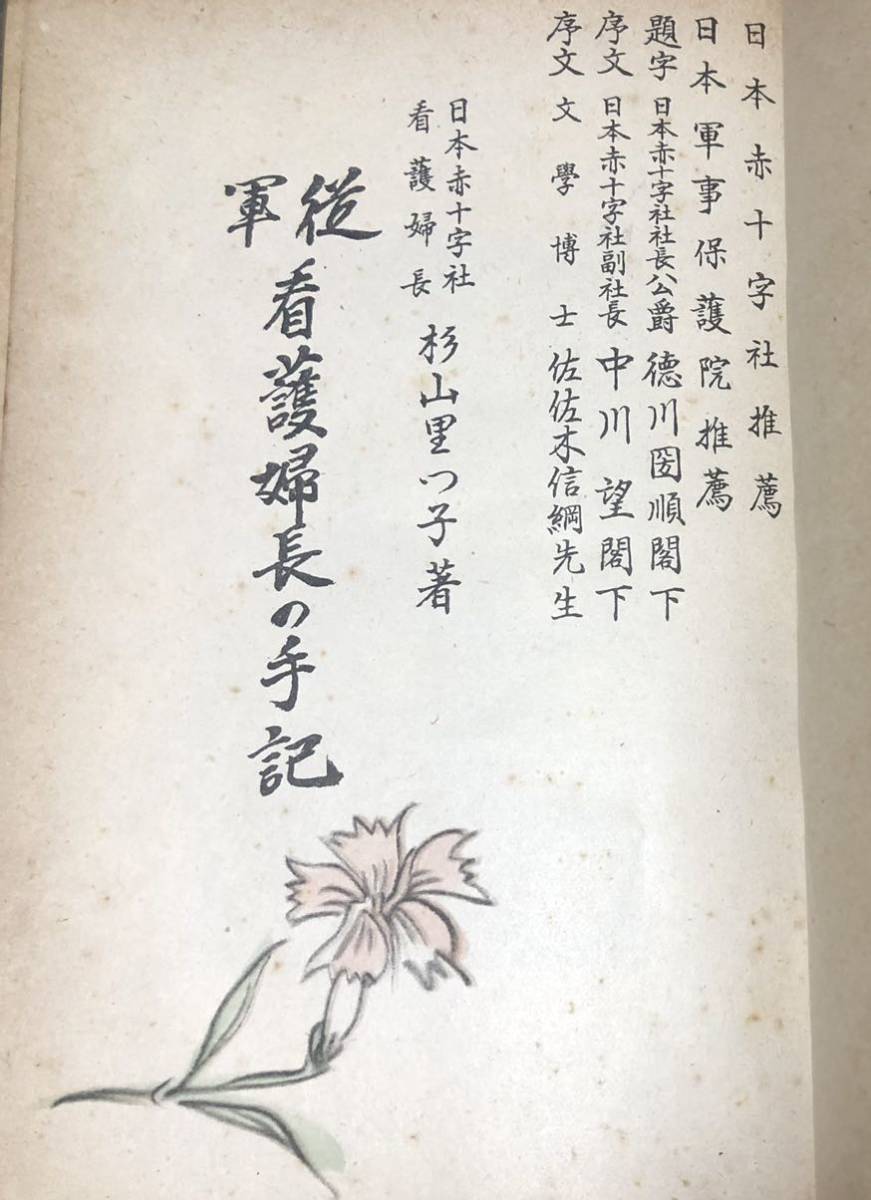 日本赤十字社推薦
日本軍事保護院推薦
題字 日本赤十字社社長公爵 德川圀順閣下
序文 日本赤十字社副社長 中川望閣下
序文 文學博士 佐佐木信綱先生
日本赤十字社
看護婦長
杉山里つ子著
從軍
看護婦長の手記